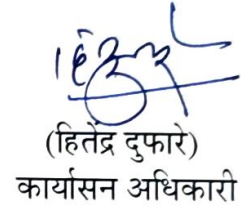 (हितेंद्र दुफारे)
कार्यासन अधिकारी